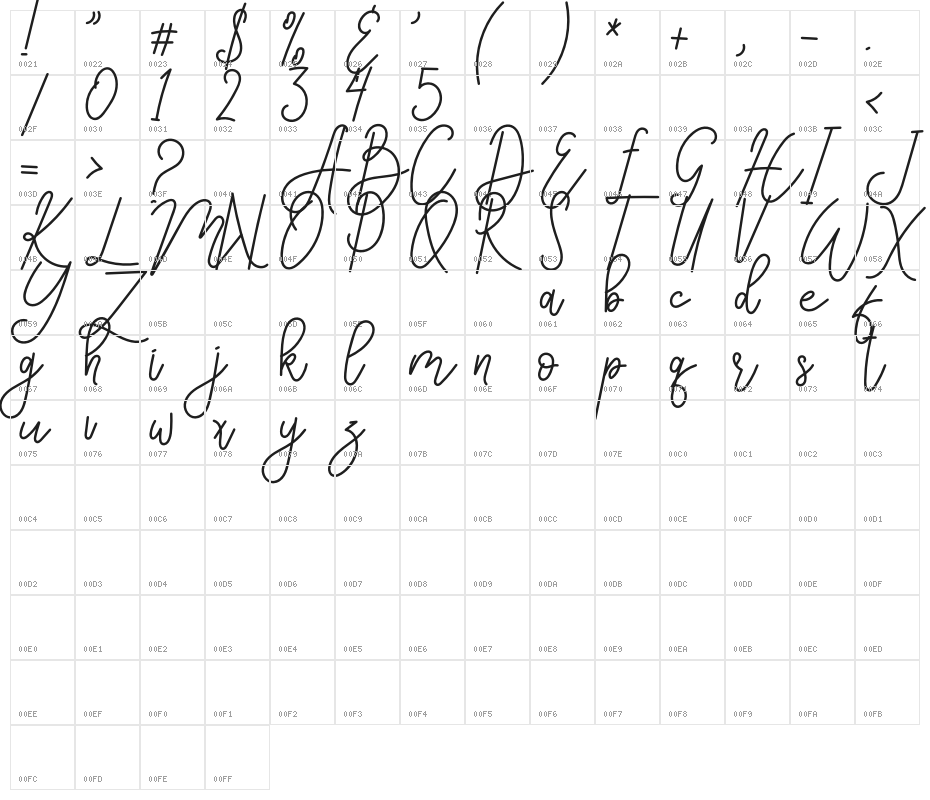 ! " # $ % & ' ( ) * + , - .
0021 0022 0023 0024 0025 0026 0027 0028 0029 002A 002B 002C 002D 002E
/ 0 1 2 3 4 5 <
002F 0030 0031 0032 0033 0034 0035 0036 0037 0038 0039 003A 003B 003C
= > ? A B C D E F G H I J
003D 003E 003F 0040 0041 0042 0043 0044 0045 0046 0047 0048 0049 004A
K L M N O P Q R S T U V W X
004B 004C 004D 004E 004F 0050 0051 0052 0053 0054 0055 0056 0057 0058
Y Z a b c d e f
0059 005A 005B 005C 005D 005E 005F 0060 0061 0062 0063 0064 0065 0066
g h i j k l m n o p q r s t
0067 0068 0069 006A 006B 006C 006D 006E 006F 0070 0071 0072 0073 0074
u v w x y z
0075 0076 0077 0078 0079 007A 007B 007C 007D 007E 00C0 00C1 00C2 00C3
00C4 00C5 00C6 00C7 00C8 00C9 00CA 00CB 00CC 00CD 00CE 00CF 00D0 00D1
00D2 00D3 00D4 00D5 00D6 00D7 00D8 00D9 00DA 00DB 00DC 00DD 00DE 00DF
00E0 00E1 00E2 00E3 00E4 00E5 00E6 00E7 00E8 00E9 00EA 00EB 00EC 00ED
00EE 00EF 00F0 00F1 00F2 00F3 00F4 00F5 00F6 00F7 00F8 00F9 00FA 00FB
00FC 00FD 00FE 00FF